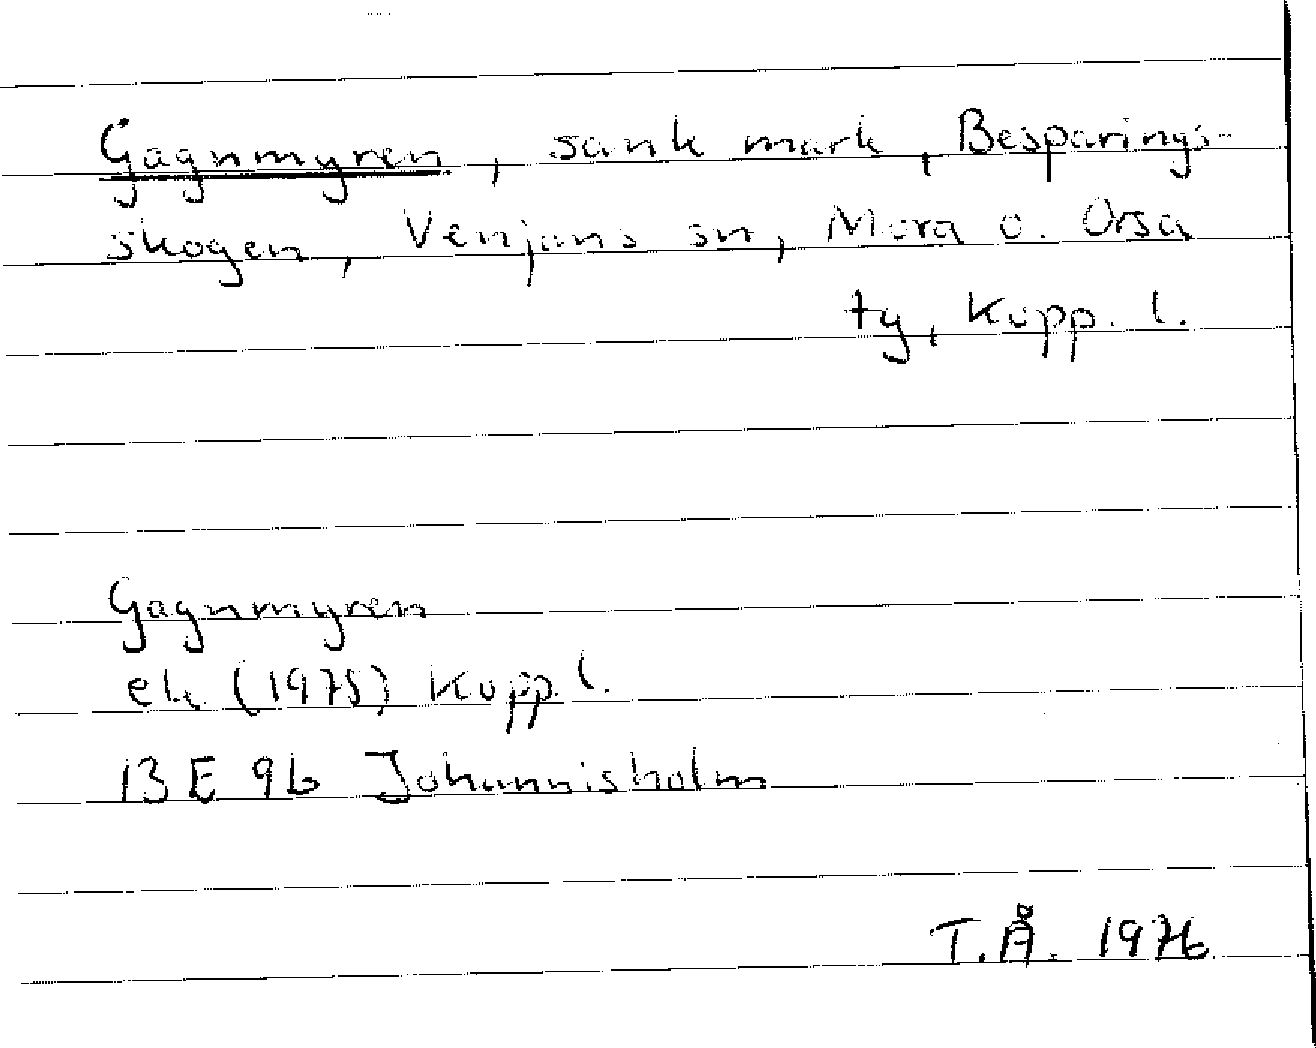 Gagnmyren, sank mark, Besparings-
skogen, Venjans sn, Mora o. Orsa
ty, Kopp. l.
Gagnmyren
ek. (1975) Kopp. l.
13 E 9b Johannisholm
T.Å. 1976